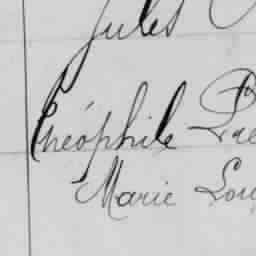 Jules
Théophile
Marie Lou